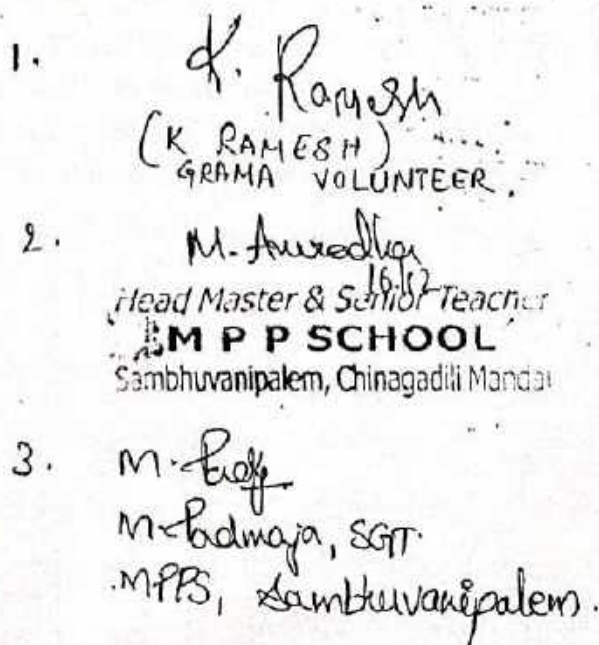 1. K. Ramesh
(K RAMESH)
GRAMA VOLUNTEER.
2. M. Anuradha
16.12
Head Master & Senior Teacher
M P P SCHOOL
Sambhuvanipalem, Chinagadili Mandal
3. M.
M. Padmaja, SGT.
MPPS, Sambhuvanipalem.